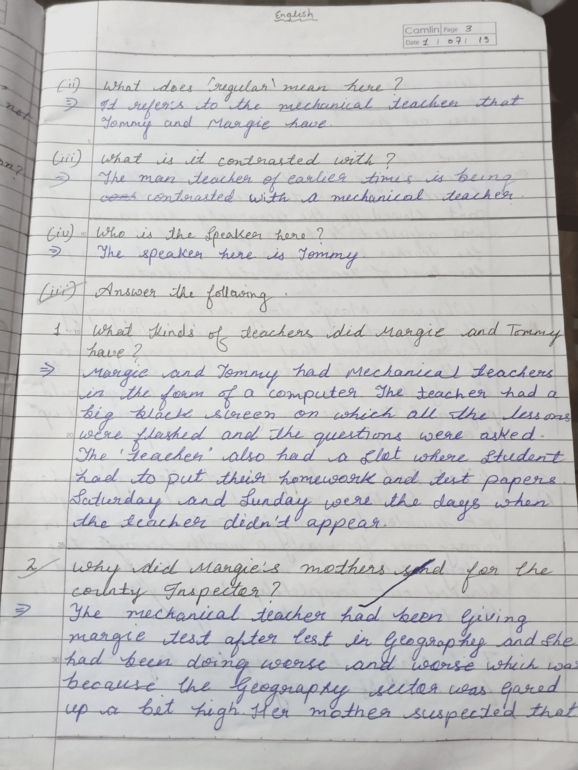 English
Camlin Page 3
Date 1 / 07 / 19
not
on?
(ii) What does 'regular' mean here?
⇒ It refers to the mechanical teacher that
Tommy and Margie have
(iii) What is it contrasted with?
⇒ The man teacher of earlier times is being
contrasted with a mechanical teacher.
(iv) Who is the Speaker here?
⇒ The speaker here is Tommy
(iii) Answer the following.
1 What kinds of teachers did Margie and Tommy
have?
⇒ Margie and Tommy had Mechanical teachers
in the form of a computer The teacher had a
big black screen on which all the lessons
were flashed and the questions were asked.
The 'teacher' also had a slot where Student
had to put their homework and test papers
Saturday and Sunday were the days when
the teacher didn't appear.
2 Why did Margie's mothers send for the
county Inspector?
⇒ The mechanical teacher had been Giving
margie test after test in Geography and She
had been doing worse and worse which was
because the Geography sector was Gared
up a bet high. Her mother suspected that